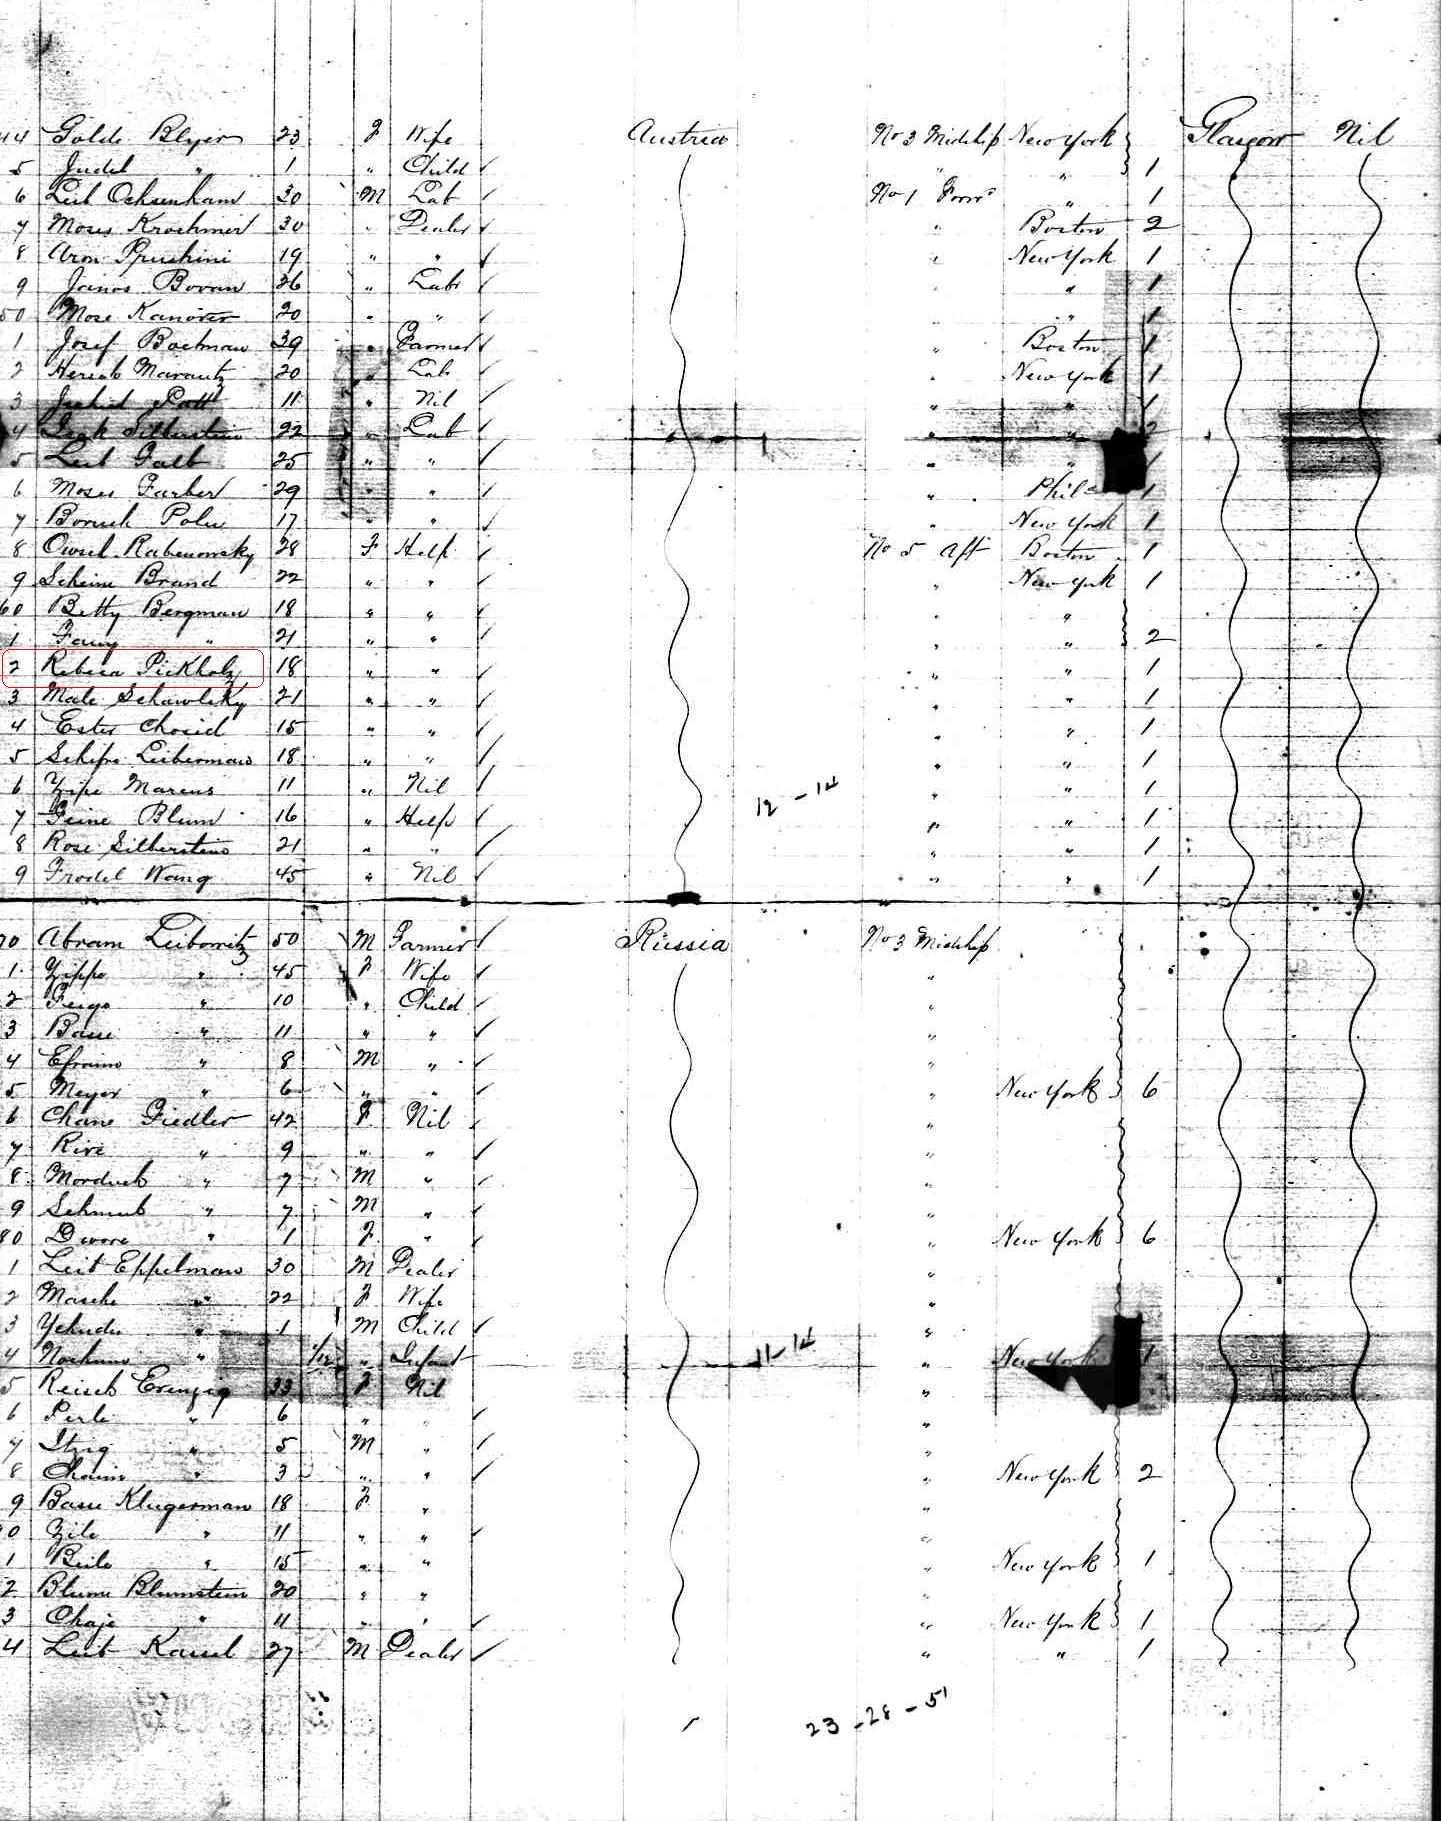 44 Golde Blyer 23 F Wife Austria No 3 Midship New York Glasgow Nil
5 Judel " 1 " Child " " 1
6 Leib Ochsenham 30 M Lab No 1 Forw " 1
7 Moses Krochmer 30 " Dealer " Boston 2
8 Aron 19 " " " New York 1
9 Janos Bovan 26 " Labr " " 1
50 Mose Kanover 20 " " " " 1
1 Josef Boetman 39 " Farmer " Boston 1
2 Hersch 20 " Lab " New York 1
3 11 " Nil " " 1
4 Silberstein 22 " Lab " " 2
5 Leib Galb 25 " " " " 1
6 Moses Farber 29 " " " Phila 1
7 Boruch 17 " " " New York 1
8 Owsel Rabenowsky 28 F Help No 5 Aft Boston 1
9 Scheine Brand 22 " " " New York 1
60 Betty Bergman 18 " " " "
1 Fanny " 21 " " " " 2
2 Rebeca Pickholz 18 " " " " 1
3 Male Schawlsky 21 " " " " 1
4 Ester Chosid 15 " " " " 1
5 Schifre Liberman 18 " " " " 1
6 Zipe Marcus 11 " Nil 12 - 14 " " 1
7 Feine Blum 16 " Help " " 1
8 Rose Silberstein 21 " " " " 1
9 Frodel Wang 45 " Nil " " 1
70 Abram Leibowitz 50 M Farmer Russia No 3 Midship
1 Zippe " 45 F Wife "
2 Feige " 10 " Child "
3 Basie " 11 " " "
4 Efraim " 8 M " "
5 Meyer " 6 " " " New York 6
6 Chane Fiedler 42 F Nil "
7 Rive " 9 " " "
8 Morduch " 7 M " "
9 Schmub " 7 M " "
80 Dwore " 1 F " " New York 6
1 Leib Eppelman 30 M Dealer "
2 Masche " 22 F Wife "
3 Yehude " 1 M Child "
4 Nochum " 1/12 " Infant 11-14 " New York 1
5 Reisch 33 F Nil "
6 Perle " 6 " " "
7 Itzig " 5 M " "
8 Chaim " 3 " " " New York 2
9 Basie Klugerman 18 F " "
90 Zile " 11 " " "
1 Beile " 15 " " " New York 1
2 Blume Blumstein 20 " " "
3 Chaje " 11 " " " New York 1
4 Leib 27 M Dealer " " 1
23 - 28 - 51